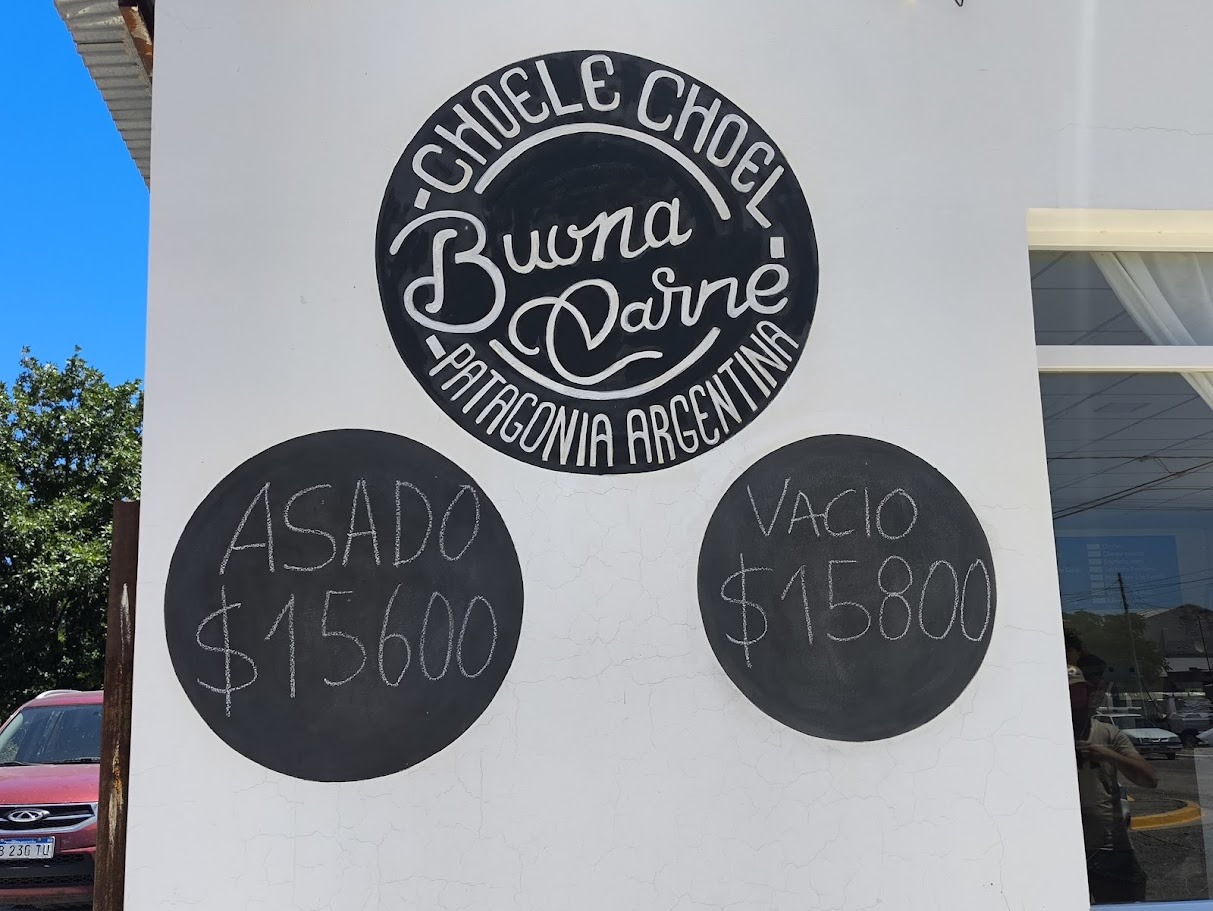 -CHOELE CHOEL-
Buona
Carne
-PATAGONIA ARGENTINA
ASADO
$15600
VACIO
$15800
230 TU